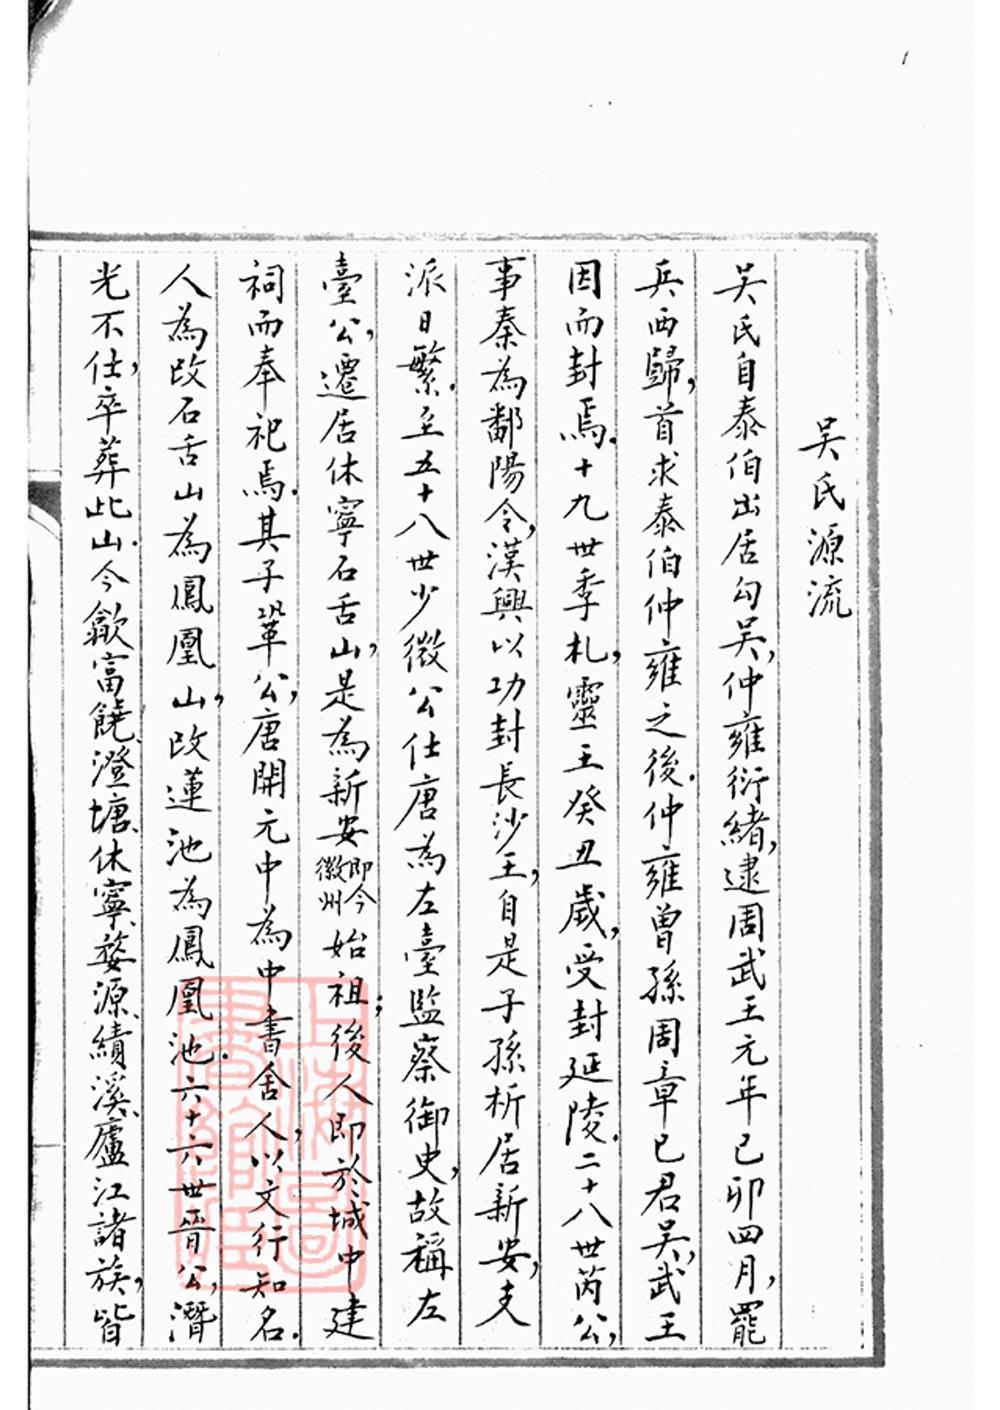 吴氏源流
吴氏自泰伯出居勾吴,仲雍衍緒,逮周武王元年已卯四月,罷
兵西歸,首求泰伯仲雍之後.仲雍曾孫周章已君吴,武王
因而封焉.十九世季札,靈王癸丑歲,受封延陵.二十八世芮公,
事秦為鄱陽令,漢興以功封長沙王,自是子孫析居新安,支
派日繁.至五十八世少微公仕唐為左臺監察御史,故稱左
臺公,遷居休寧石舌山,是為新安即今徽州始祖;後人即於城中建
祠而奉祀焉.其子鞏公,唐開元中為中書舍人,以文行知名.
人為改石舌山為鳳凰山,改蓮池為鳳凰池.六十六世晉公,潛
光不仕,卒葬此山.今歙富饒、澄塘、休寧、婺源、績溪、廬江諸族,皆
上海圖書館藏